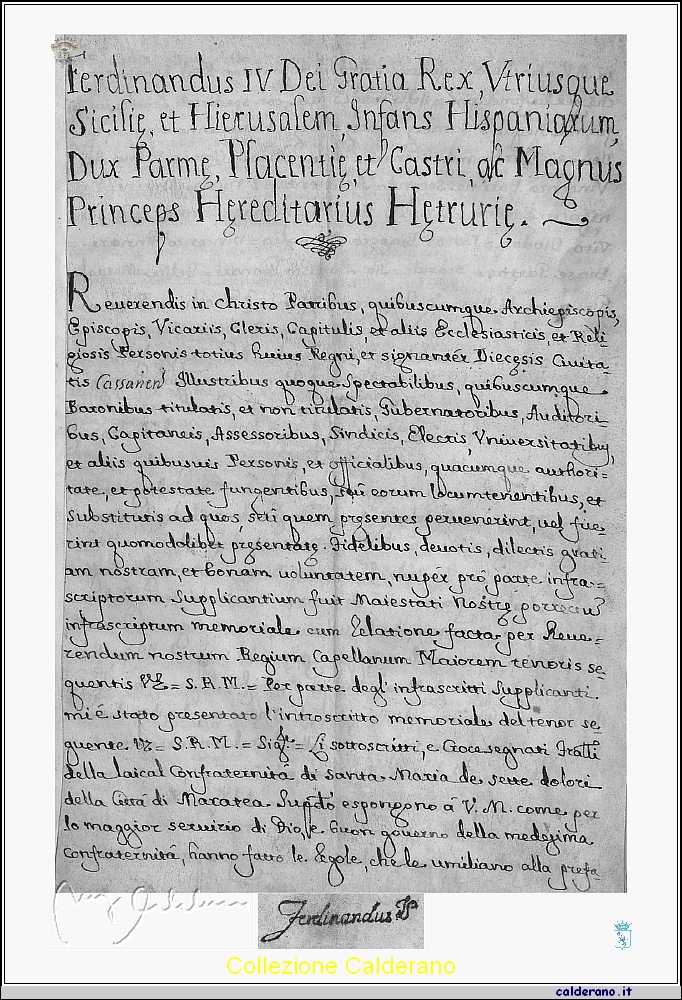 Ferdinandus IV Dei Gratia Rex, Vtriusque
Sicilię, et Hierusalem, Infans Hispaniarum,
Dux Parmę, Placentię, et Castri, ac Magnus
Princeps Hęreditarius Hętrurię.
Reuerendis in Christo Patribus, quibuscumque Archiepiscopis,
Episcopis, Vicariis, Cleris, Capitulis, et aliis Ecclesiasticis, et Reli-
giosis Personis totius huius Regni, et signantèr Diecęsis Ciuita-
tis Cassanen Illustribus quoque Spectabilibus, quibuscumque
Baronibus titulatis, et non titulatis, Gubernatoribus, Auditori-
bus, Capitaneis, Assessoribus, Sindicis, Electis, Vniuersitatibus,
et aliis quibusuis Personis, et officialibus, quacumque authori-
tate, et potestate fungentibus, seù eorum locumtenentibus, et
substitutis ad quos, seù quem pręsentes peruenerint, uel fue-
rint quomodolibet pręsentatę. Fidelibus, deuotis, dilectis grati-
am nostram, et bonam uoluntatem, nupèr prò parte infra-
scriptorum Supplicantium fuit Maiestati Nostrę porrectũ
infrascriptum memoriale cum Relatione facta per Reue-
rendum nostrum Regium Capellanum Maiorem tenoris se-
quentis Vz = S. R. M. = Per parte degl'infrascritti Supplicanti
mi è stato presentato l'introscritto memoriale del tenor se-
guente Vz = S. R. M. = Sig.re = Li sottoscritti, e Crocesegnati Fratti
della laical Confraternità di santa Maria de sette dolori
della Città di Maratea. Supp.do espongono à V. M. come per
lo maggior seruizio di Dio, e buon gouerno della medesima
Confraternità, hanno fatto le Regole, che le umiliano alla presa-
Ferdinandus
Collezione Calderano
calderano.it